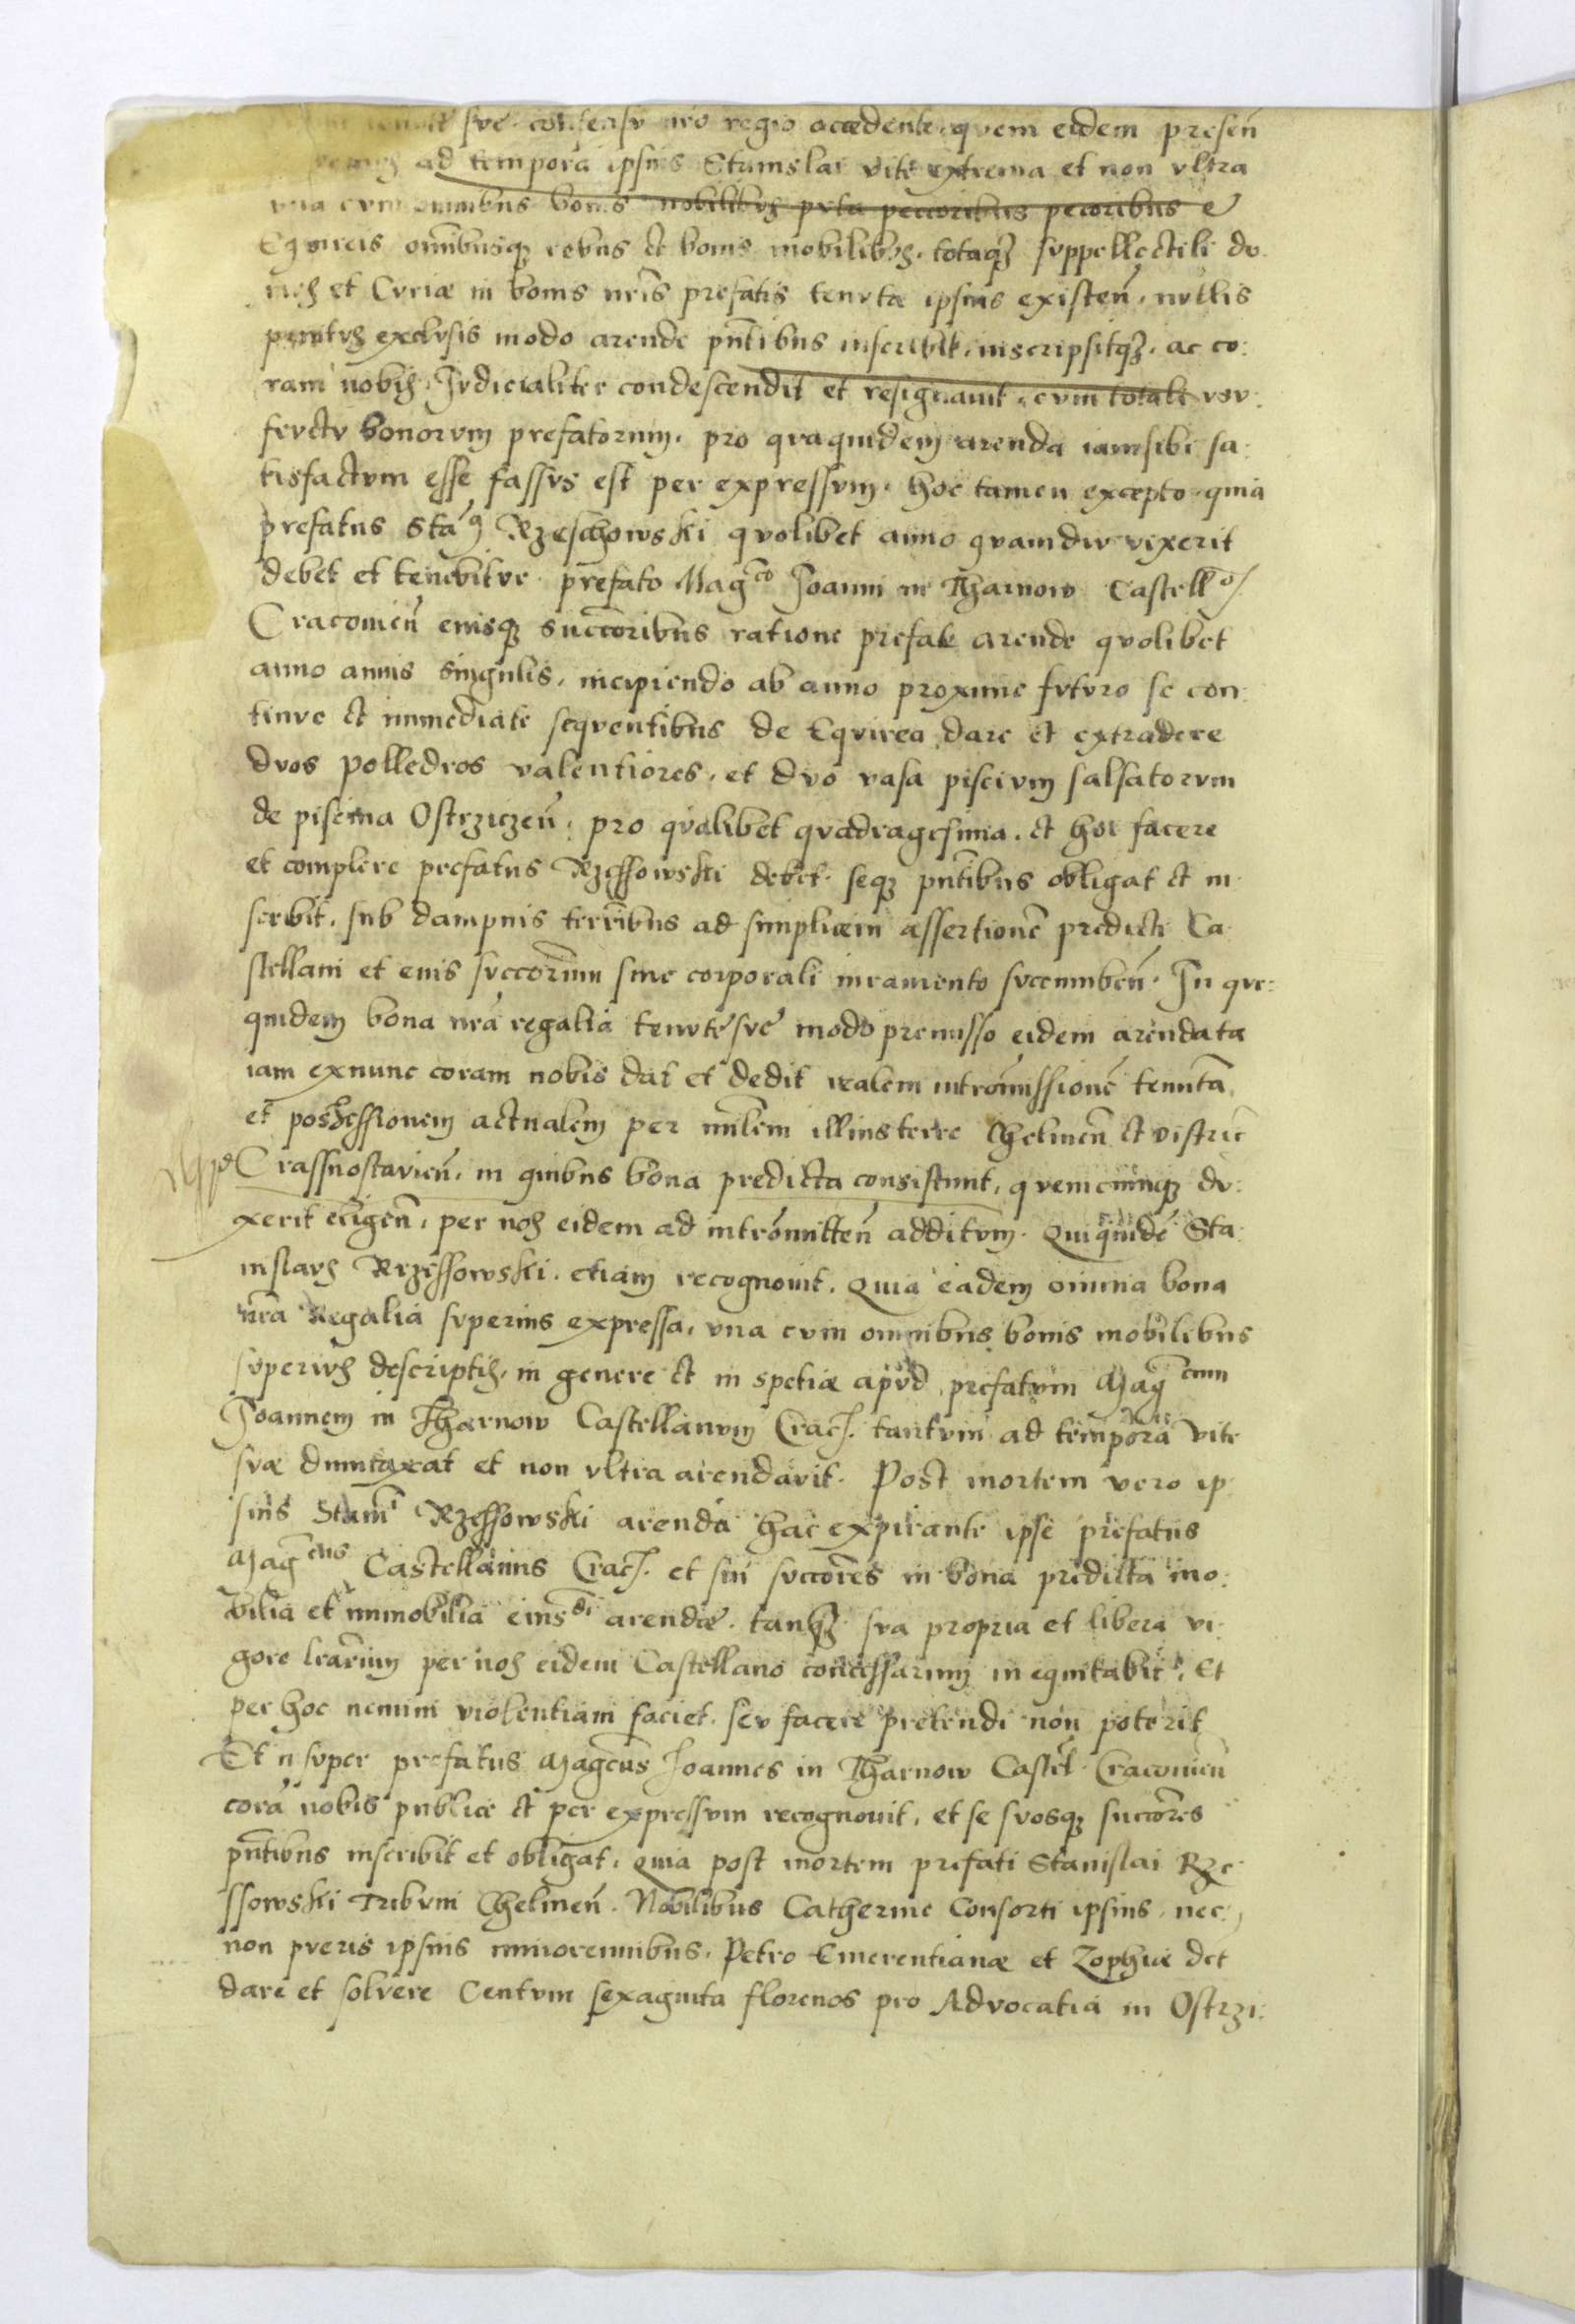 sue consensu nro regio accedente, quem eidem presen̄
ad tempora ipsius Stanislai vite extrema et non vltra
vna cum omnibus bonis nobilibus puta peccoribus pecoribus e
Equireis omnibusq̃ rebus et bonis mobilibus, totaq̃ suppellectili do
mus et Curiæ in bonis nr̄is prefatis tenutæ ipsius existen̄, nullis
penitus exclusis modo arende pn̄tibus inscribit, inscripsitq̃, ac co:
ram nobis Judicialiter condescendit et resignauit, cum totali usu:
fructu bonorum prefatorum, pro quaquidem arenda iam sibi sa:
tisfactum esse fassus est per expressum, hoc tamen excepto quia
prefatus Sta9 Rzeschowski quolibet anno quamdiu vixerit
debet et tenebitur prefato Magco Joanni in Tharnow Castello
Cracouien̄ eiusq̃ succoribus ratione prefate arende quolibet
anno annis singulis, incipiendo ab anno proxime futuro se con:
tinue et immediate sequentibus de Equirea dare et extradere
duos polledros valentiores, et duo vasa piscium salsatorum
de piscina Ostrziczen̄, pro qualibet quadragesima, et hoc facere
et complere prefatus Rzessowski debet, seq̃ pn̄tibus obligat et in
scribit, sub dampnis terr̄ibus ad simplicem assertionē predicti Ca
stellani et eius succorum sine corporali iuramento succumben̄. In que:
quidem bona nrā regalia tenutē suē modo premisso eidem arendata
iam exnunc coram nobis dat et dedit realem intromissionē tenutā
et possessionem actualem per mīlem illius terre Chelmen̄ et district
Crassnostauien̄, in quibus bona predicta consistunt, quemcunq̃ du:
xerit eligen̄, per nos eidem ad intromitten̄ additum. Quiquidē Sta
nislaus Rzessowski, etiam recognouit, Quia eadem omnia bona
nrā Regalia superius expressa, vna cum omnibus bonis mobilibus
superius descriptis, in genere et in spetiæ apud prefatum Magcum
Joannem in Tharnow Castellanum Crac̄. tantum ad tempora vite
suæ dumtaxat et non vltra arendavit. Post mortem vero ip
sius Stani Rzessowski arenda hac expirante ipse prefatus
Magcus Castellanus Crac̄. et sui succores in bona predicta mo:
bilia et immobilia eiusdi arendæ, tanq̃ sua propria et libera vi:
gore lrārum per nos eidem Castellano concessarum in equitabit, Et
per hoc nemini violentiam faciet, seu facere pretendi non poterit
Et insuper prefatus Magcus Joannes in Tharnow Castel̄ Cracouien̄
corā nobis publice et per expressum recognouit, et se suosq̃ succores
pn̄tibus inscribit et obligat, quia post mortem prefati Stanislai Rze
ssowski Tribuni Chelmen̄. Nobilibus Catherine Consorti ipsius, nec
non pueris ipsius minorennibus, Petro Emerentianæ et Zophiæ det
dare et solvere Centum sexaginta florenos pro Advocatia in Ostrzi: